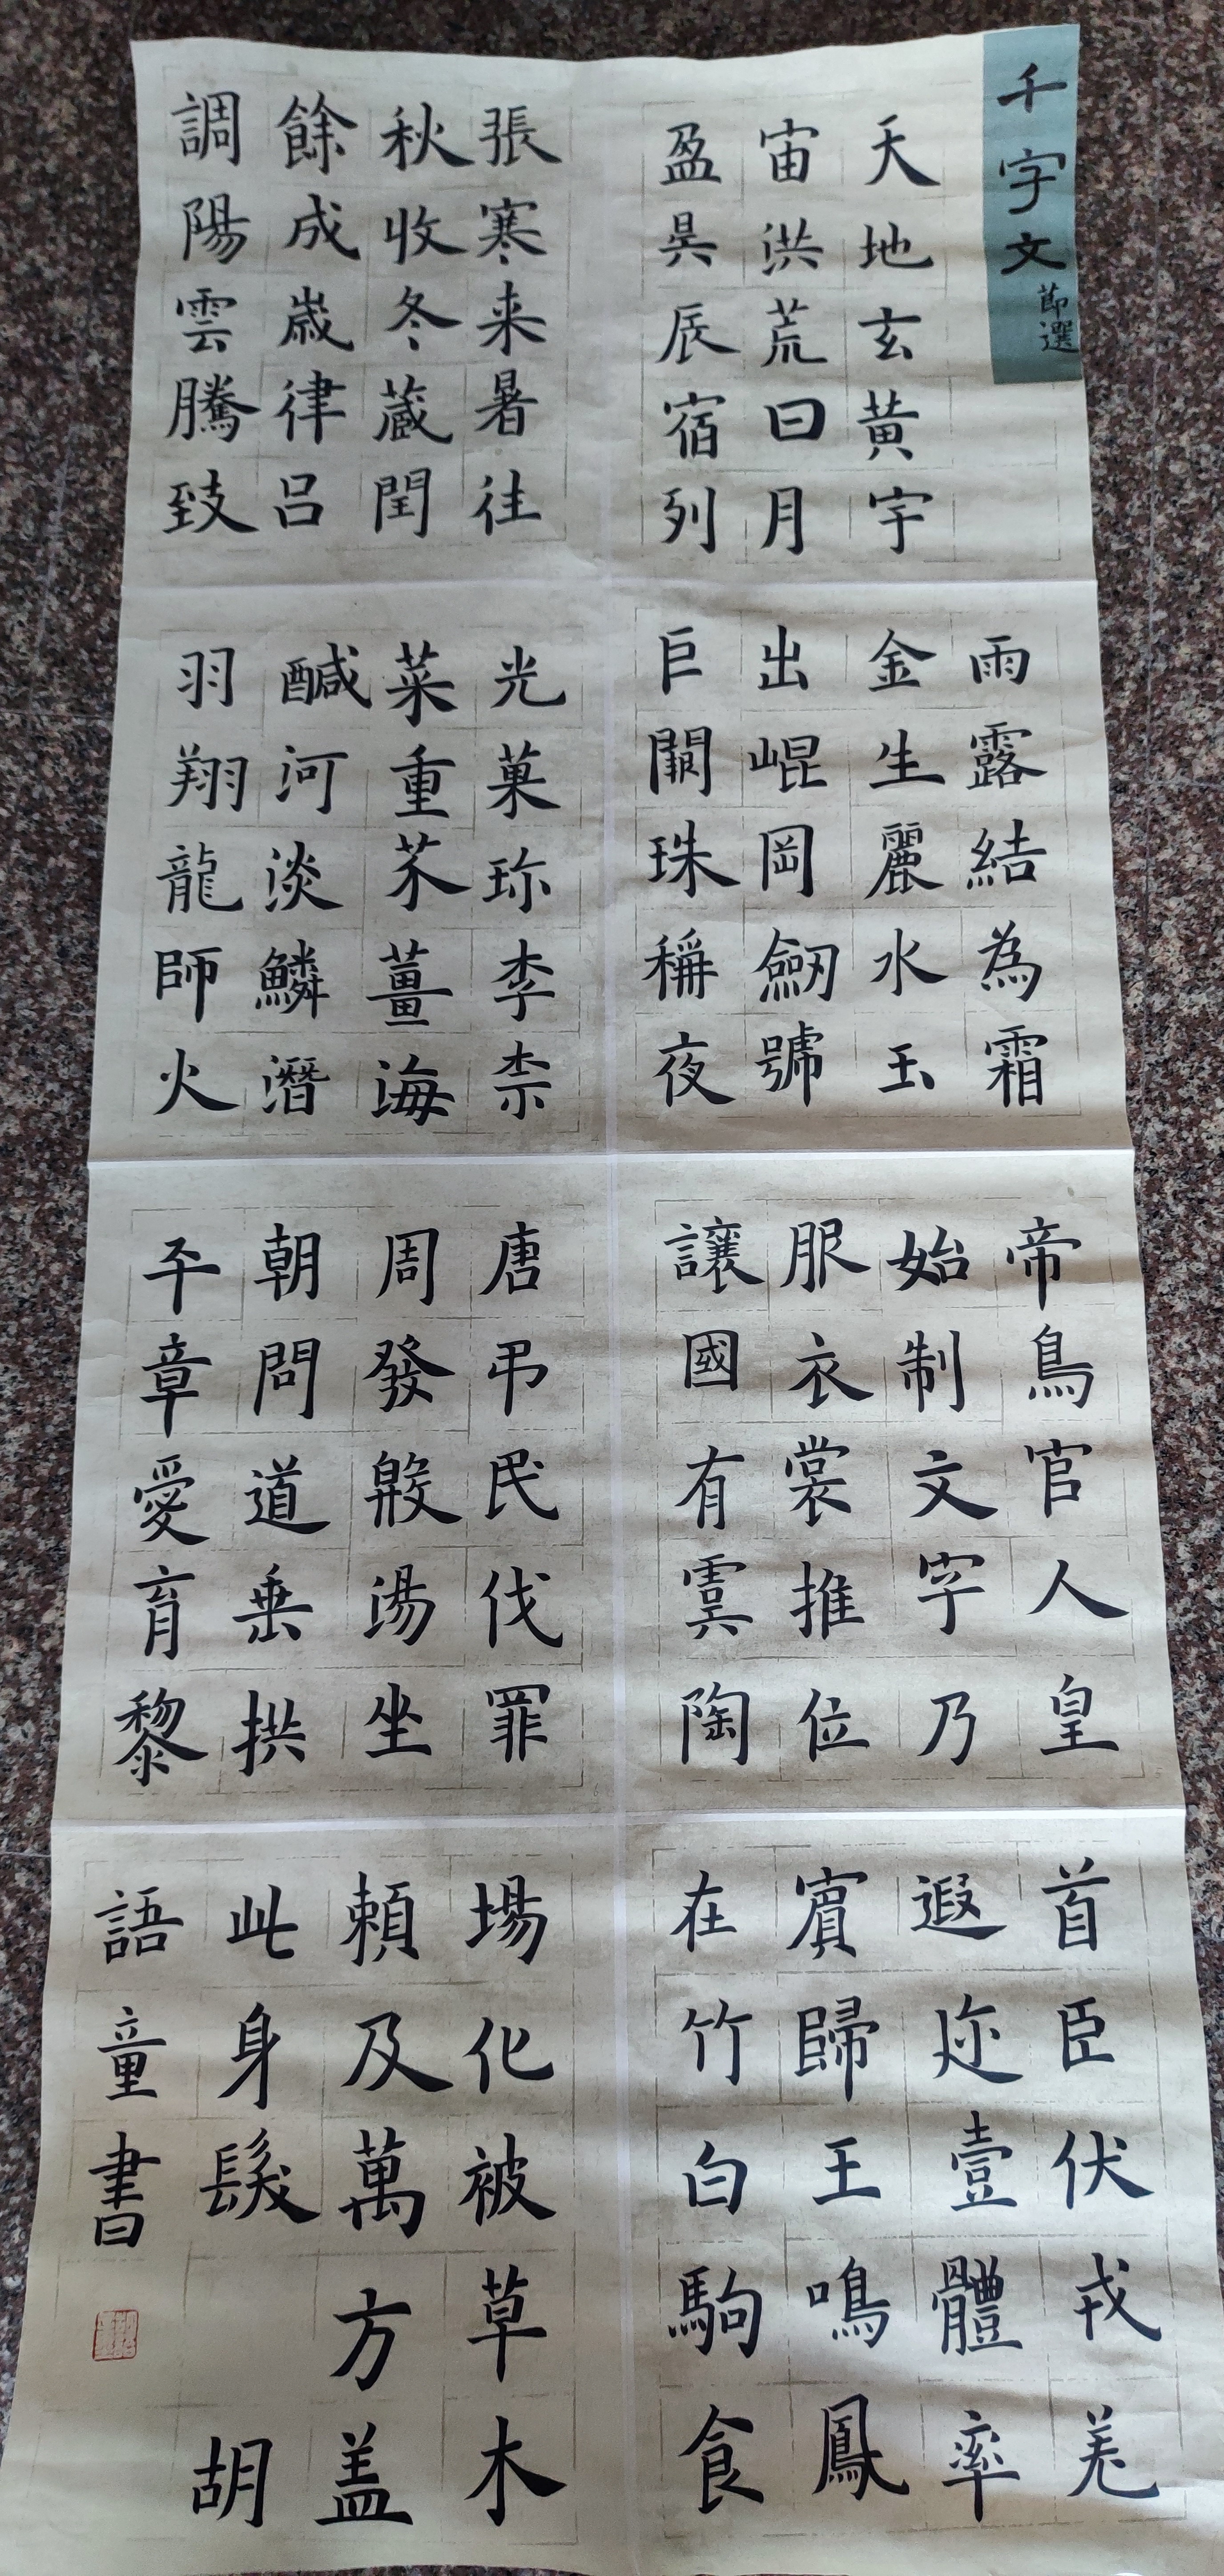 千字文節選
天地玄黃宇
宙洪荒日月
盈昃辰宿列
張寒来暑往
秋收冬蔵閏
餘成歲律呂
調陽雲騰致
雨露結為霜
金生麗水玉
出崐岡劒號
巨闕珠稱夜
光菓珎李柰
菜重芥薑海
醎河淡鱗潛
羽翔龍師火
帝鳥官人皇
始制文字乃
服衣裳推位
讓國有虞陶
唐弔民伐罪
周發殷湯坐
朝問道垂拱
平章愛育黎
首臣伏戎羌
遐迩壹體率
賓歸王鳴鳳
在竹白駒食
場化被草木
頼及萬方盖
此身髮 胡
語童書